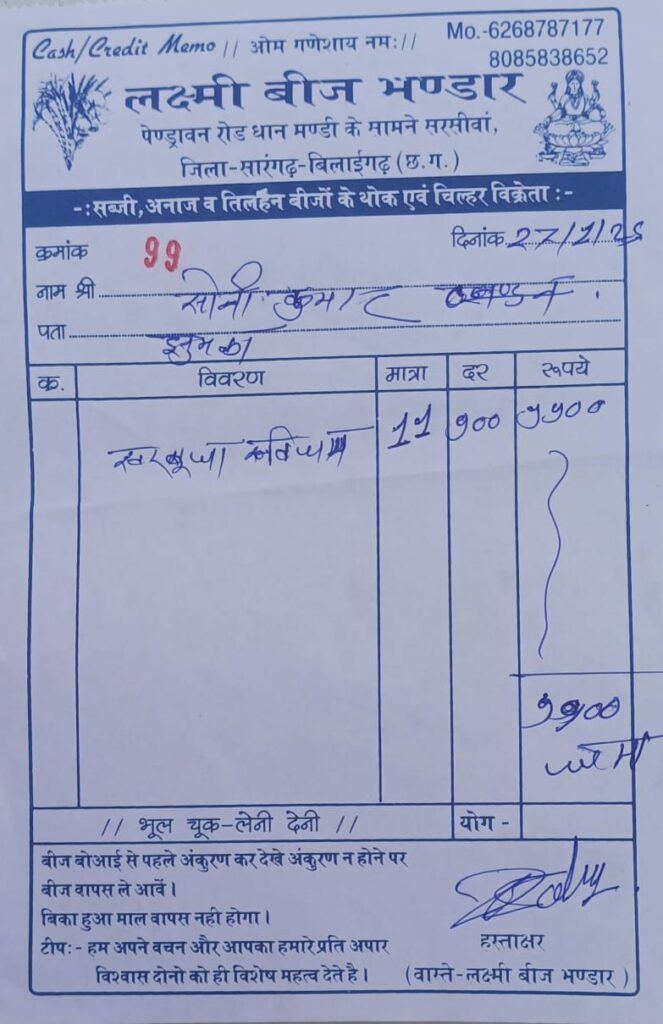 Cash/Credit Memo // ओम गणेशाय नमः// Mo.-6268787177
8085838652
लक्ष्मी बीज भण्डार
पेण्ड्रावन रोड धान मण्डी के सामने सरसीवां,
जिला-सारंगढ़-बिलाईगढ़ (छ.ग.)
-:सब्जी, अनाज व तिलहन बीजों के थोक एवं चिल्हर विक्रेता :-
क्रमांक 99 दिनांक 27/1/25
नाम श्री सोनी कुमार
पता
क्र. विवरण मात्रा दर रूपये
खरबूजा 11 900 9900
9900
जमा
// भूल चूक-लेनी देनी // योग -
बीज बोआई से पहले अंकुरण कर देखे अंकुरण न होने पर
बीज वापस ले आवें।
बिका हुआ माल वापस नही होगा।
टीप:- हम अपने वचन और आपका हमारे प्रति अपार
विश्वास दोनो को ही विशेष महत्व देते है।
हस्ताक्षर
(वास्ते-लक्ष्मी बीज भण्डार)